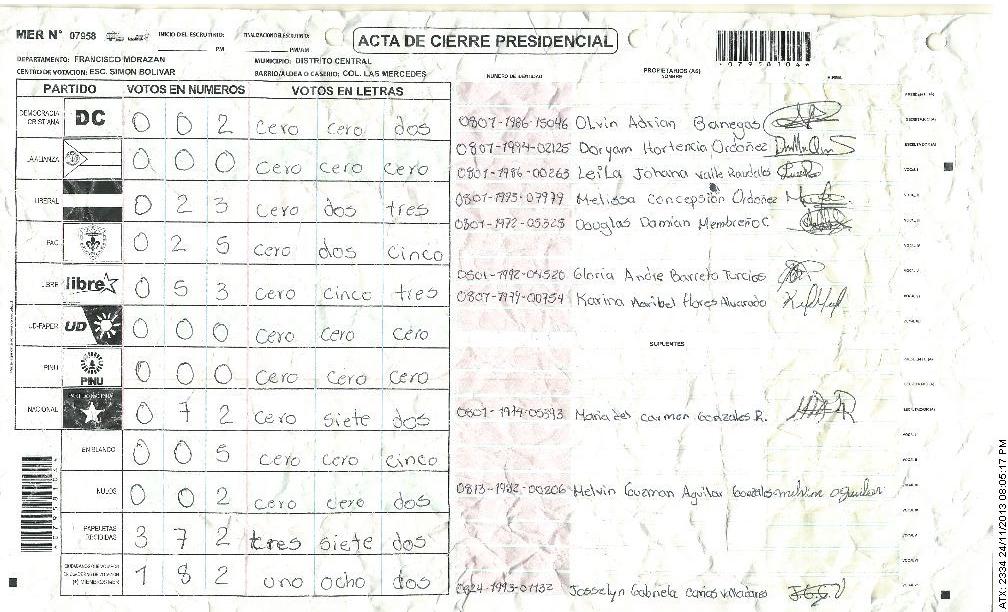 MER N° 07958 INICIO DEL ESCRUTINIO: PM FINALIZACION ESCRUTINIO: PM/AM
ACTA DE CIERRE PRESIDENCIAL
*07958104*
DEPARTAMENTO: FRANCISCO MORAZAN MUNICIPIO: DISTRITO CENTRAL
CENTRO DE VOTACION: ESC. SIMON BOLIVAR BARRIO/ALDEA O CASERIO: COL. LAS MERCEDES
NUMERO DE IDENTIDAD PROPIETARIOS (AS) NOMBRE FIRMA
PARTIDO VOTOS EN NUMEROS VOTOS EN LETRAS
DEMOCRACIA CRISTIANA DC 0 0 2 cero cero dos
LA ALIANZA 0 0 0 cero cero cero
LIBERAL 0 2 3 cero dos tres
PAC 0 2 5 cero dos cinco
LIBRE libre 0 5 3 cero cinco tres
UD-FAPER UD 0 0 0 cero cero cero
PINU PINU 0 0 0 cero cero cero
NACIONAL 0 7 2 cero siete dos
EN BLANCO 0 0 5 cero cero cinco
NULOS 0 0 2 cero cero dos
PAPELETAS RECIBIDAS 3 7 2 tres siete dos
1 8 2 uno ocho dos
0801-1986-15046 Olvin Adrian Banegas
0801-1994-02125 Doryam Hortencia Ordoñez
0801-1986-00263 Leila Johana Valle Raudales
0801-1975-07979 Melissa Concepsión Ordoñez
0801-1972-05325 Douglas Damian Membreño C
0501-1992-04520 Gloria Andre Barreto Turcios
0801-1979-00754 Karina Maribel Flores Alvarado
SUPLENTES
0801-1974-05393 Maria del Carmen Gonzales R.
0813-1982-00206 Melvin Guzman Aguilar Gonzales
0824-1993-01132 Josselyn Gabriela
ATX-2334 24/11/2013 08:05:17 PM